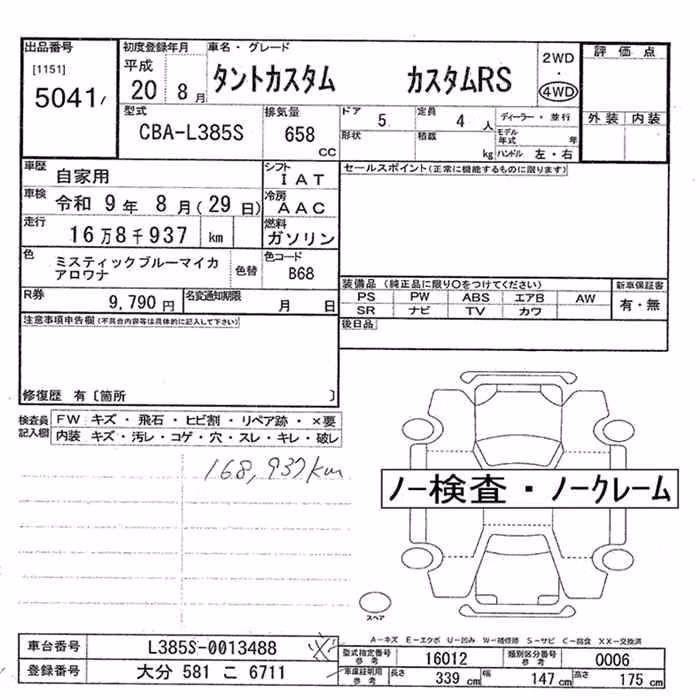 出品番号
[1151]
5041
初度登録年月
平成
20 8月
車名・グレード
タントカスタム カスタムRS
2WD
・
4WD
評価点
外装 内装
型式
CBA-L385S
排気量
658
CC
ドア
5
定員
4 人
ディーラー・並行
形状
積載
kg
モデル年式 年
ハンドル 左・右
車歴
自家用
シフト
IAT
車検
令和 9年 8月(29日)
冷房
AAC
走行
16万8千937 km
燃料
ガソリン
色
ミスティックブルーマイカ
アロワナ
色替
色コード
B68
R券
9,790 円
名変通知期限
月 日
セールスポイント(正常に機能するものに限ります)
装備品 (純正品に限り○をつけてください)
新車保証書
PS PW ABS エアB AW
SR ナビ TV カワ
有・無
後日品
注意事項申告欄(不具合内容等は具体的に記入して下さい)
修復歴 有〔箇所 〕
検査員記入欄
FW キズ・飛石・ヒビ割・リペア跡・×要
内装 キズ・汚レ・コゲ・穴・スレ・キレ・破レ
168,937km
ノー検査・ノークレーム
スペア
A-キズ E-エクボ U-凹み W-補修跡 S-サビ C-腐食 XX-交換済
車台番号
L385S-0013488
登録番号
大分 581 こ 6711
型式指定番号
参考
16012
類別区分番号
参考
0006
車庫証明用
参考
長さ
339 cm
幅
147 cm
高さ
175 cm